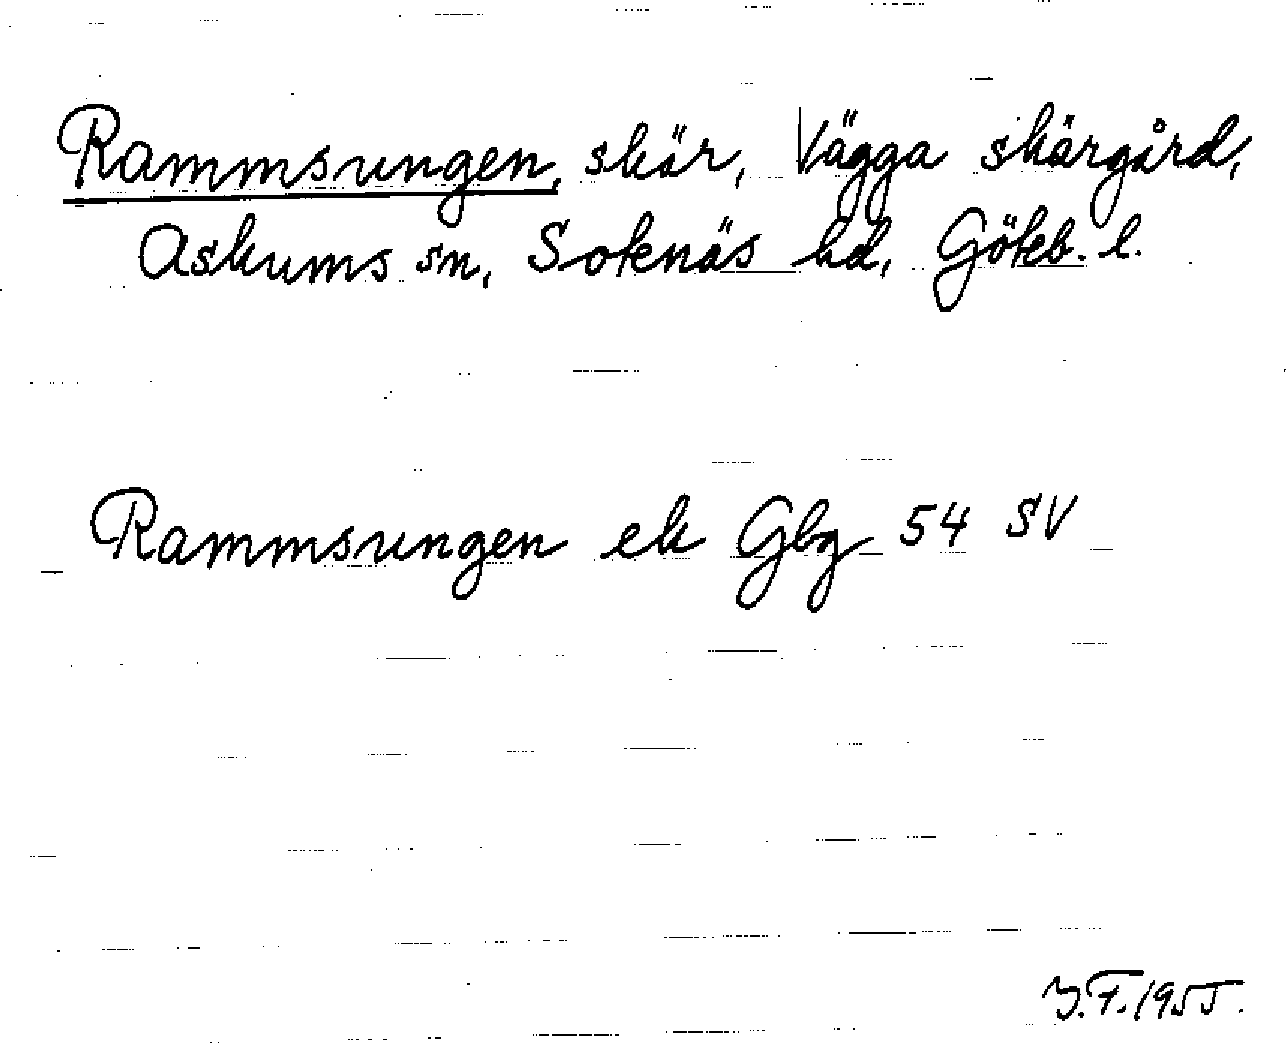 Rammsungen, skär, Vägga skärgård,
Askums sn, Sotenäs hd, Göteb. l.
Rammsungen ek Gbg 54 SV
Y.F. 1955.